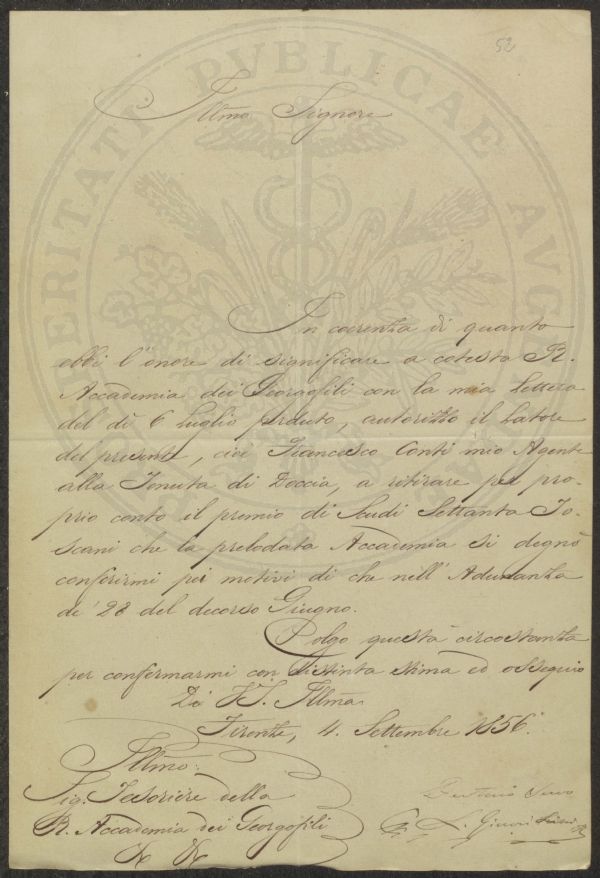 52
Illmo Signore
In coerenza di quanto
ebbi l'onore di significare a cotesta R.
Accademia dei Georgofili con la mia Lettera
del dì 6 Luglio perduto, autorizzo il latore
del presente, cioè Francesco Conti mio Agente
alla Tenuta di Doccia, a ritirare per pro-
prio conto il premio di Scudi Settanta To-
scani che la prelodata Accademia si degnò
conferirmi pei motivi di che nell'Adunanza
de' 28 del decorso Giugno.
Colgo questa circostanza
per confermarmi con distinta stima ed ossequio
Di VS. Illma
Firenze, 4. Settembre 1856.
Illmo:
Sig. Tesoriere della
R. Accademia dei Georgofili
Servo
L. Ginori
PROSPERITATI PVBLICAE AVGE